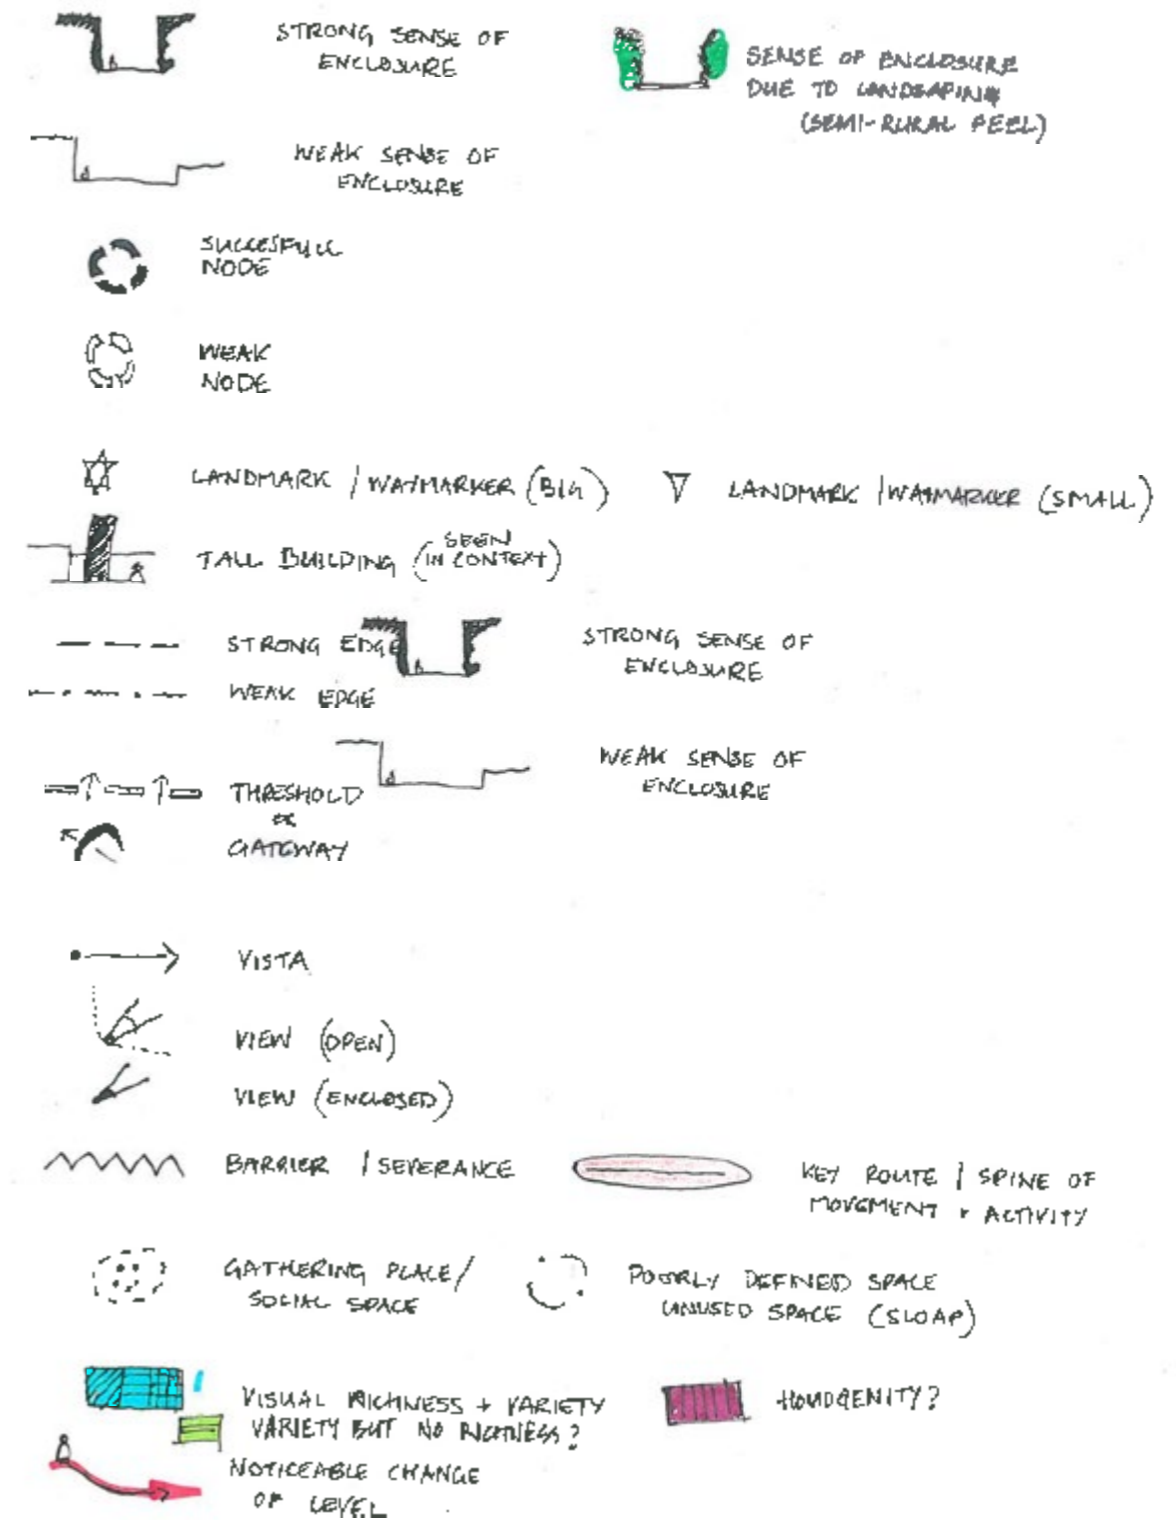 STRONG SENSE OF
ENCLOSURE
SENSE OF ENCLOSURE
DUE TO LANDSAPING
(SEMI-RURAL FEEL)
WEAK SENSE OF
ENCLOSURE
SUCCESFULL
NODE
WEAK
NODE
LANDMARK / WAYMARKER (BIG)
LANDMARK / WAYMARKER (SMALL)
TALL BUILDING (SEEN
IN CONTEXT)
STRONG EDGE
STRONG SENSE OF
ENCLOSURE
WEAK EDGE
WEAK SENSE OF
ENCLOSURE
THRESHOLD
OR
GATEWAY
VISTA
VIEW (OPEN)
VIEW (ENCLOSED)
BARRIER / SEVERANCE
KEY ROUTE / SPINE OF
MOVEMENT + ACTIVITY
GATHERING PLACE/
SOCIAL SPACE
POORLY DEFINED SPACE
UNUSED SPACE (SLOAP)
VISUAL RICHNESS + VARIETY
VARIETY BUT NO RICHNESS?
HOMOGENITY?
NOTICEABLE CHANGE
OF LEVEL